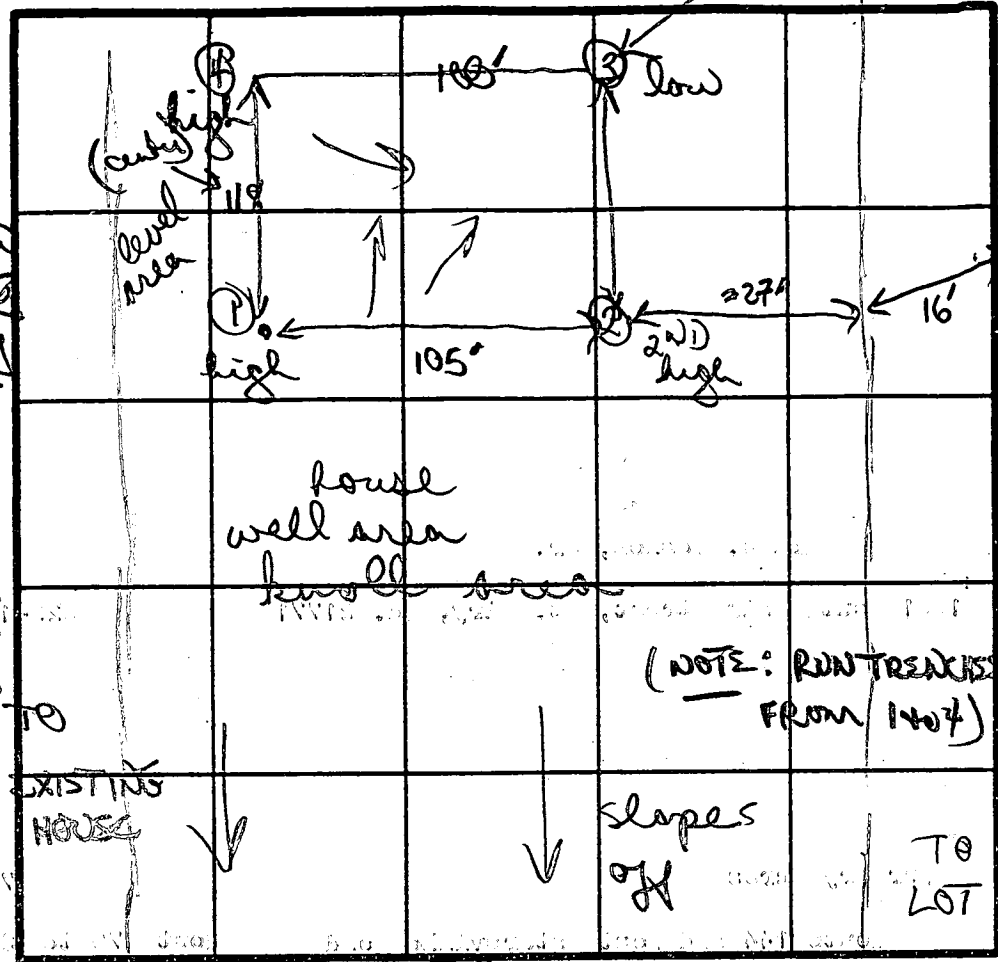 4
100'
3
low
high
(center)
118
level
area
1
high
105'
2
2ND
high
≈27'
16'
house
well area
knoll area
(NOTE: RUN TRENCHES
FROM 1 to 4)
TO
EXISTING
HOUSE
slopes
off
TO
LOT